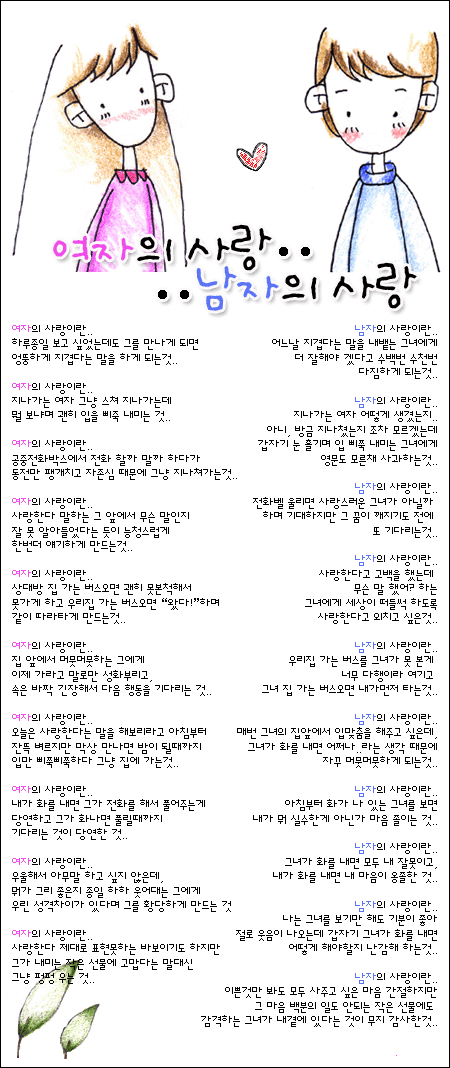 여자의 사랑..
..남자의 사랑
여자의 사랑이란..
하루종일 보고 싶었는데도 그를 만나게 되면
엉뚱하게 지겹다는 말을 하게 되는것..
여자의 사랑이란..
지나가는 여자 그냥 스쳐 지나가는데
뭘 보냐며 괜히 입을 삐죽 내미는 것..
여자의 사랑이란..
공중전화박스에서 전화 할까 말까 하다가
동전만 팽개치고 자존심 때문에 그냥 지나쳐가는것..
여자의 사랑이란..
사랑한다 말하는 그 앞에서 무슨 말인지
잘 못 알아들었다는 듯이 능청스럽게
한번더 얘기하게 만드는것..
여자의 사랑이란..
상대방 집 가는 버스오면 괜히 못본척해서
못가게 하고 우리집 가는 버스오면 “왔다!”하며
같이 따라타게 만드는것..
여자의 사랑이란..
집 앞에서 머뭇머뭇하는 그에게
이제 가라고 말로만 성화부리고,
속은 바짝 긴장해서 다음 행동을 기다리는 것..
여자의 사랑이란..
오늘은 사랑한다는 말을 해보리라고 아침부터
잔뜩 벼르지만 막상 만나면 밤이 될때까지
입만 삐쭉삐쭉하다 그냥 집에 가는것..
여자의 사랑이란..
내가 화를 내면 그가 전화를 해서 풀어주는게
당연하고 그가 화나면 풀릴때까지
기다리는 것이 당연한 것..
여자의 사랑이란..
우울해서 아무말 하고 싶지 않은데,
뭐가 그리 좋은지 종일 하하 웃어대는 그에게
우린 성격차이가 있다며 그를 황당하게 만드는 것
여자의 사랑이란..
사랑한다 제대로 표현못하는 바보이기도 하지만
그가 내미는 작은 선물에 고맙다는 말대신
그냥 펑펑 우는 것..
남자의 사랑이란..
어느날 지겹다는 말을 내뱉는 그녀에게
더 잘해야 겠다고 수백번 수천번
다짐하게 되는것..
남자의 사랑이란..
지나가는 여자 어떻게 생겼는지..
아니, 방금 지나쳤는지 조차 모르겠는데
갑자기 눈 흘기며 입 삐쭉 내미는 그녀에게
영문도 모른채 사과하는것..
남자의 사랑이란..
전화벨 울리면 사랑스러운 그녀가 아닐까
하며 기대하지만 그 꿈이 깨지기도 전에
또 기다리는것..
남자의 사랑이란..
사랑한다고 고백을 했는데
무슨 말 했어? 하는
그녀에게 세상이 떠들썩 하도록
사랑한다고 외치고 싶은것..
남자의 사랑이란..
우리집 가는 버스를 그녀가 못 본게
너무 다행이라 여기고
그녀 집 가는 버스오면 내가먼저 타는것..
남자의 사랑이란..
매번 그녀의 집앞에서 입맞춤을 해주고 싶은데,
그녀가 화를 내면 어쩌나.. 라는 생각 때문에
자꾸 머뭇머뭇하게 되는것..
남자의 사랑이란..
아침부터 화가 나 있는 그녀를 보면
내가 뭐 실수한게 아닌가 마음 졸이는 것..
남자의 사랑이란..
그녀가 화를 내면 모두 내 잘못이고,
내가 화를 내면 내 마음이 옹졸한 것..
남자의 사랑이란..
나는 그녀를 보기만 해도 기분이 좋아
절로 웃음이 나오는데 갑자기 그녀가 화를 내면
어떻게 해야할지 난감해 하는것..
남자의 사랑이란..
이쁜것만 봐도 모두 사주고 싶은 마음 간절하지만
그 마음 백분의 일도 안되는 작은 선물에도
감격하는 그녀가 내곁에 있다는 것이 무지 감사한것..